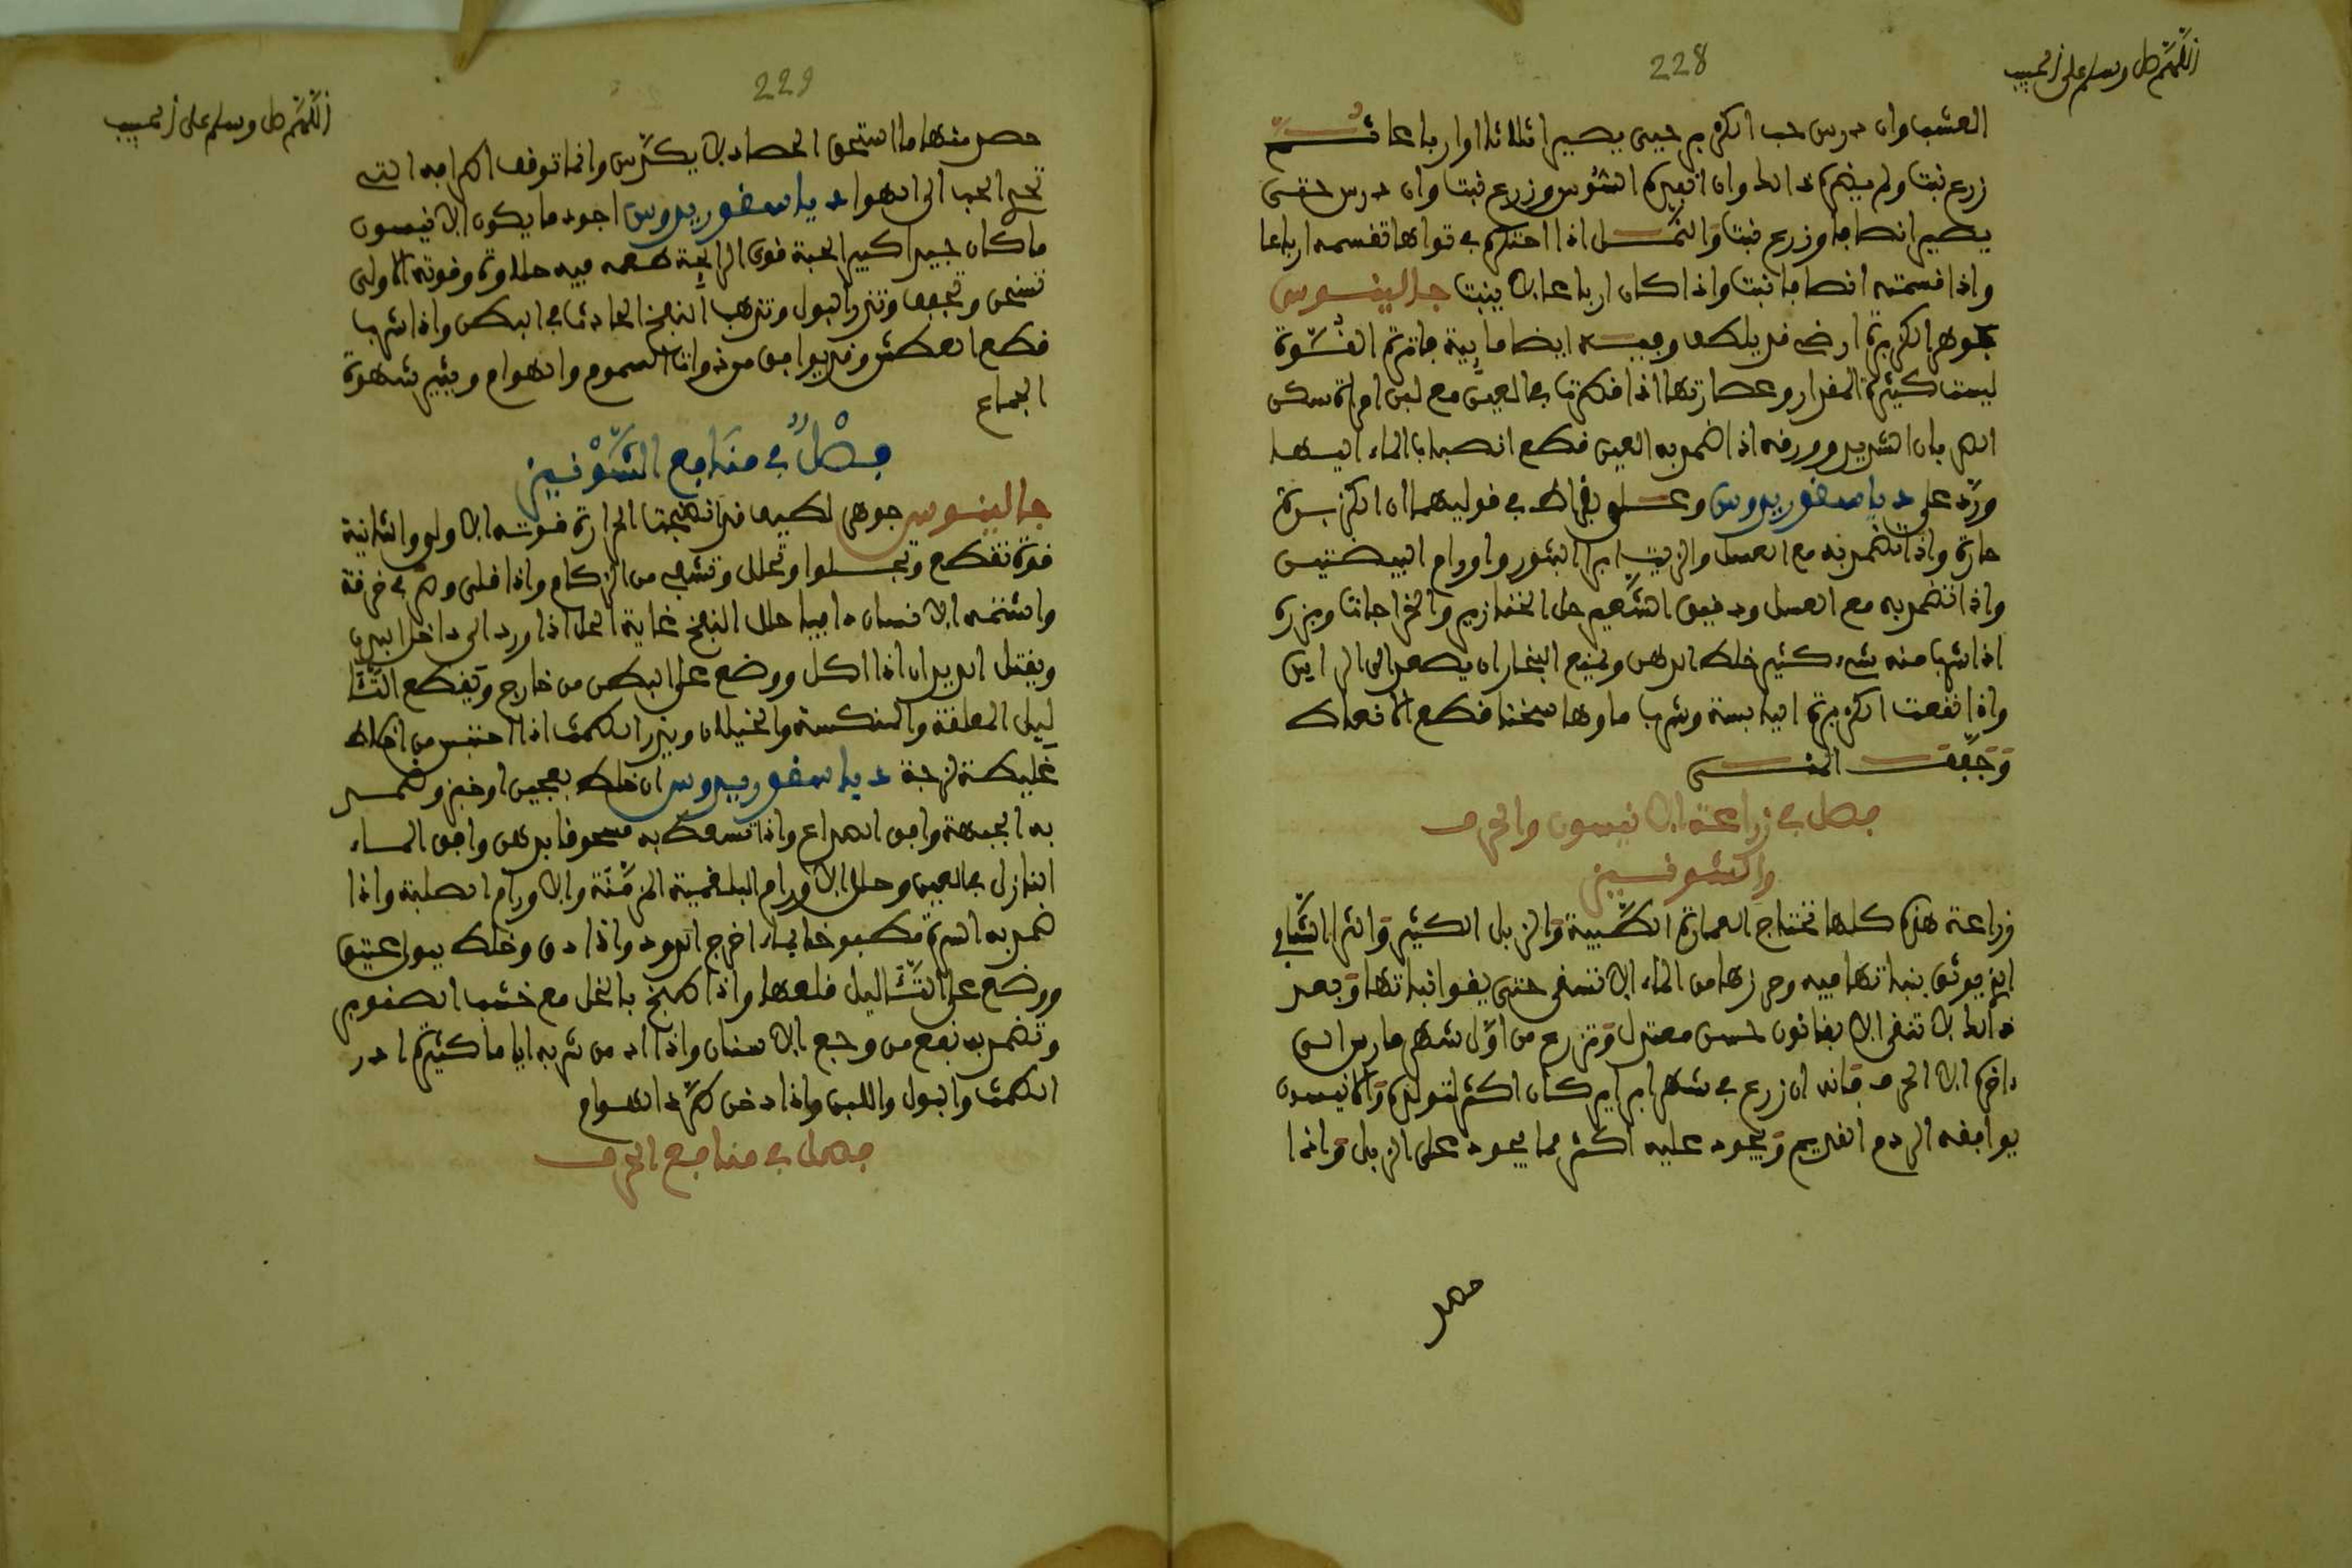 اللهم صل وسلم على الحبيب
228
العشب وان درس حب الكزبر حيى يصير اثلاثا او ارباعا ثم
زرع نبت ولم يضره ذالك وان افيره الشوس وزرع نبت وان درس حتى
يصير انصافا وزرع نبت والنمل اذا احتكر في قواها تقسمه ارباعا
واذا قسمته انصافا نبت واذا كان ارباعا لا ينبت جالينوس
جوهر الكزبرة ارضي قد يلطف وفيه ايضا مايية فاترة القوة
ليست كثيرة المقدار وعصارتها اذا قطرت في العين مع لبن امراة سكن
الضربان الشديد وورقه اذا ضمد به العين قطع انصباب الماء اليها
ورد على دياسقوريدوس وعلى بقراط في قوليهما ان الكزبرة
حارة واذا تضمد به مع العسل والزيت ابرا البثور واورام البيضتين
واذا تضمد به مع العسل ودقيق الشعير حل الخنازير والخراجات وبزره
اذا شرب منه شيء كثير خلط الذهن ويمنع البخار ان يصعد الى الراس
واذا نقعت الكزبرة اليابسة وشرب ماوها سخنا قطع الانعاظ
وجفف المنى
فصل في زراعة الانيسون والحرف
والشونيز
زراعة هذه كلها تحتاج العمارة الطيبة والزبل الكثير والثرا الشافي
الذي يوثق بنباتها فيه وحرزها من الماء لا تسقى حتى يقوا نباتها وبعد
ذالك لا تسقى الا بقانون حسن معتدل وتزرع من اول شهر مارس الى
داخره الا الحرف فانه ان زرع في شهر ابراير كان اكثر لتولده والانيسون
يوافقه الردم القديم ويجود عليه اكثر مما يجود على الزبل واذا
حصد
اللهم صل وسلم على الحبيب
229
حصد منها ما استحق الحصاد لا يكدس وانما توقف اطرافه التي
تحمل الحب الى الهوا دياسقوريدوس اجود ما يكون الانيسون
ما كان جيدا كبير الحبة قوى الرايحة طعمه فيه حلاوة وقوته الاولى
تسخن وتجفف وتدر البول وتذهب النفخ الحادث في البطن واذا شرب
قطع العطش وقد يوافق من ذوات السموم والهوام ويثير شهوة
الجماع
فصل في منافع الشونيز
جالينوس جوهر لطيف قد انضجت الحرارة قوته الاولى والثانية
قوة تقطع وتجلوا وتحلل وتشفي من الزكام واذا قلى وصر في خرقة
واشتمه الانسان دايما حلل النفخ غاية الحل اذا ورد الى داخل البدن
ويقتل الديدان اذا اكل ووضع على البطن من خارج ويقطع الثآ
ليل المعلقة والمنكسة والخيلان ويدر الطمث اذا احتبس من اخلاط
غليظة لزجة دياسقوريدوس ان خلط بعجين او خبز وضمد
به الجبهة وافق الصداع واذا تسعط به مسحوقا بدهن وافق الماء
النازل في العين وحلل الاورام البلغمية المزمنة والاورام الصلبة واذا
ضمد به السرة مطبوخا بماء اخرج الدود واذا دق وخلط ببول عتيق
ووضع على الثآليل قلعها واذا طبخ بالخل مع خشب الصنوبر
وتضمد به نفع من وجع الاسنان واذا ادمن شربه اياما كثيرة ادر
الطمث والبول واللبن واذا دخن طرد الهوام
فصل في منافع الحرف